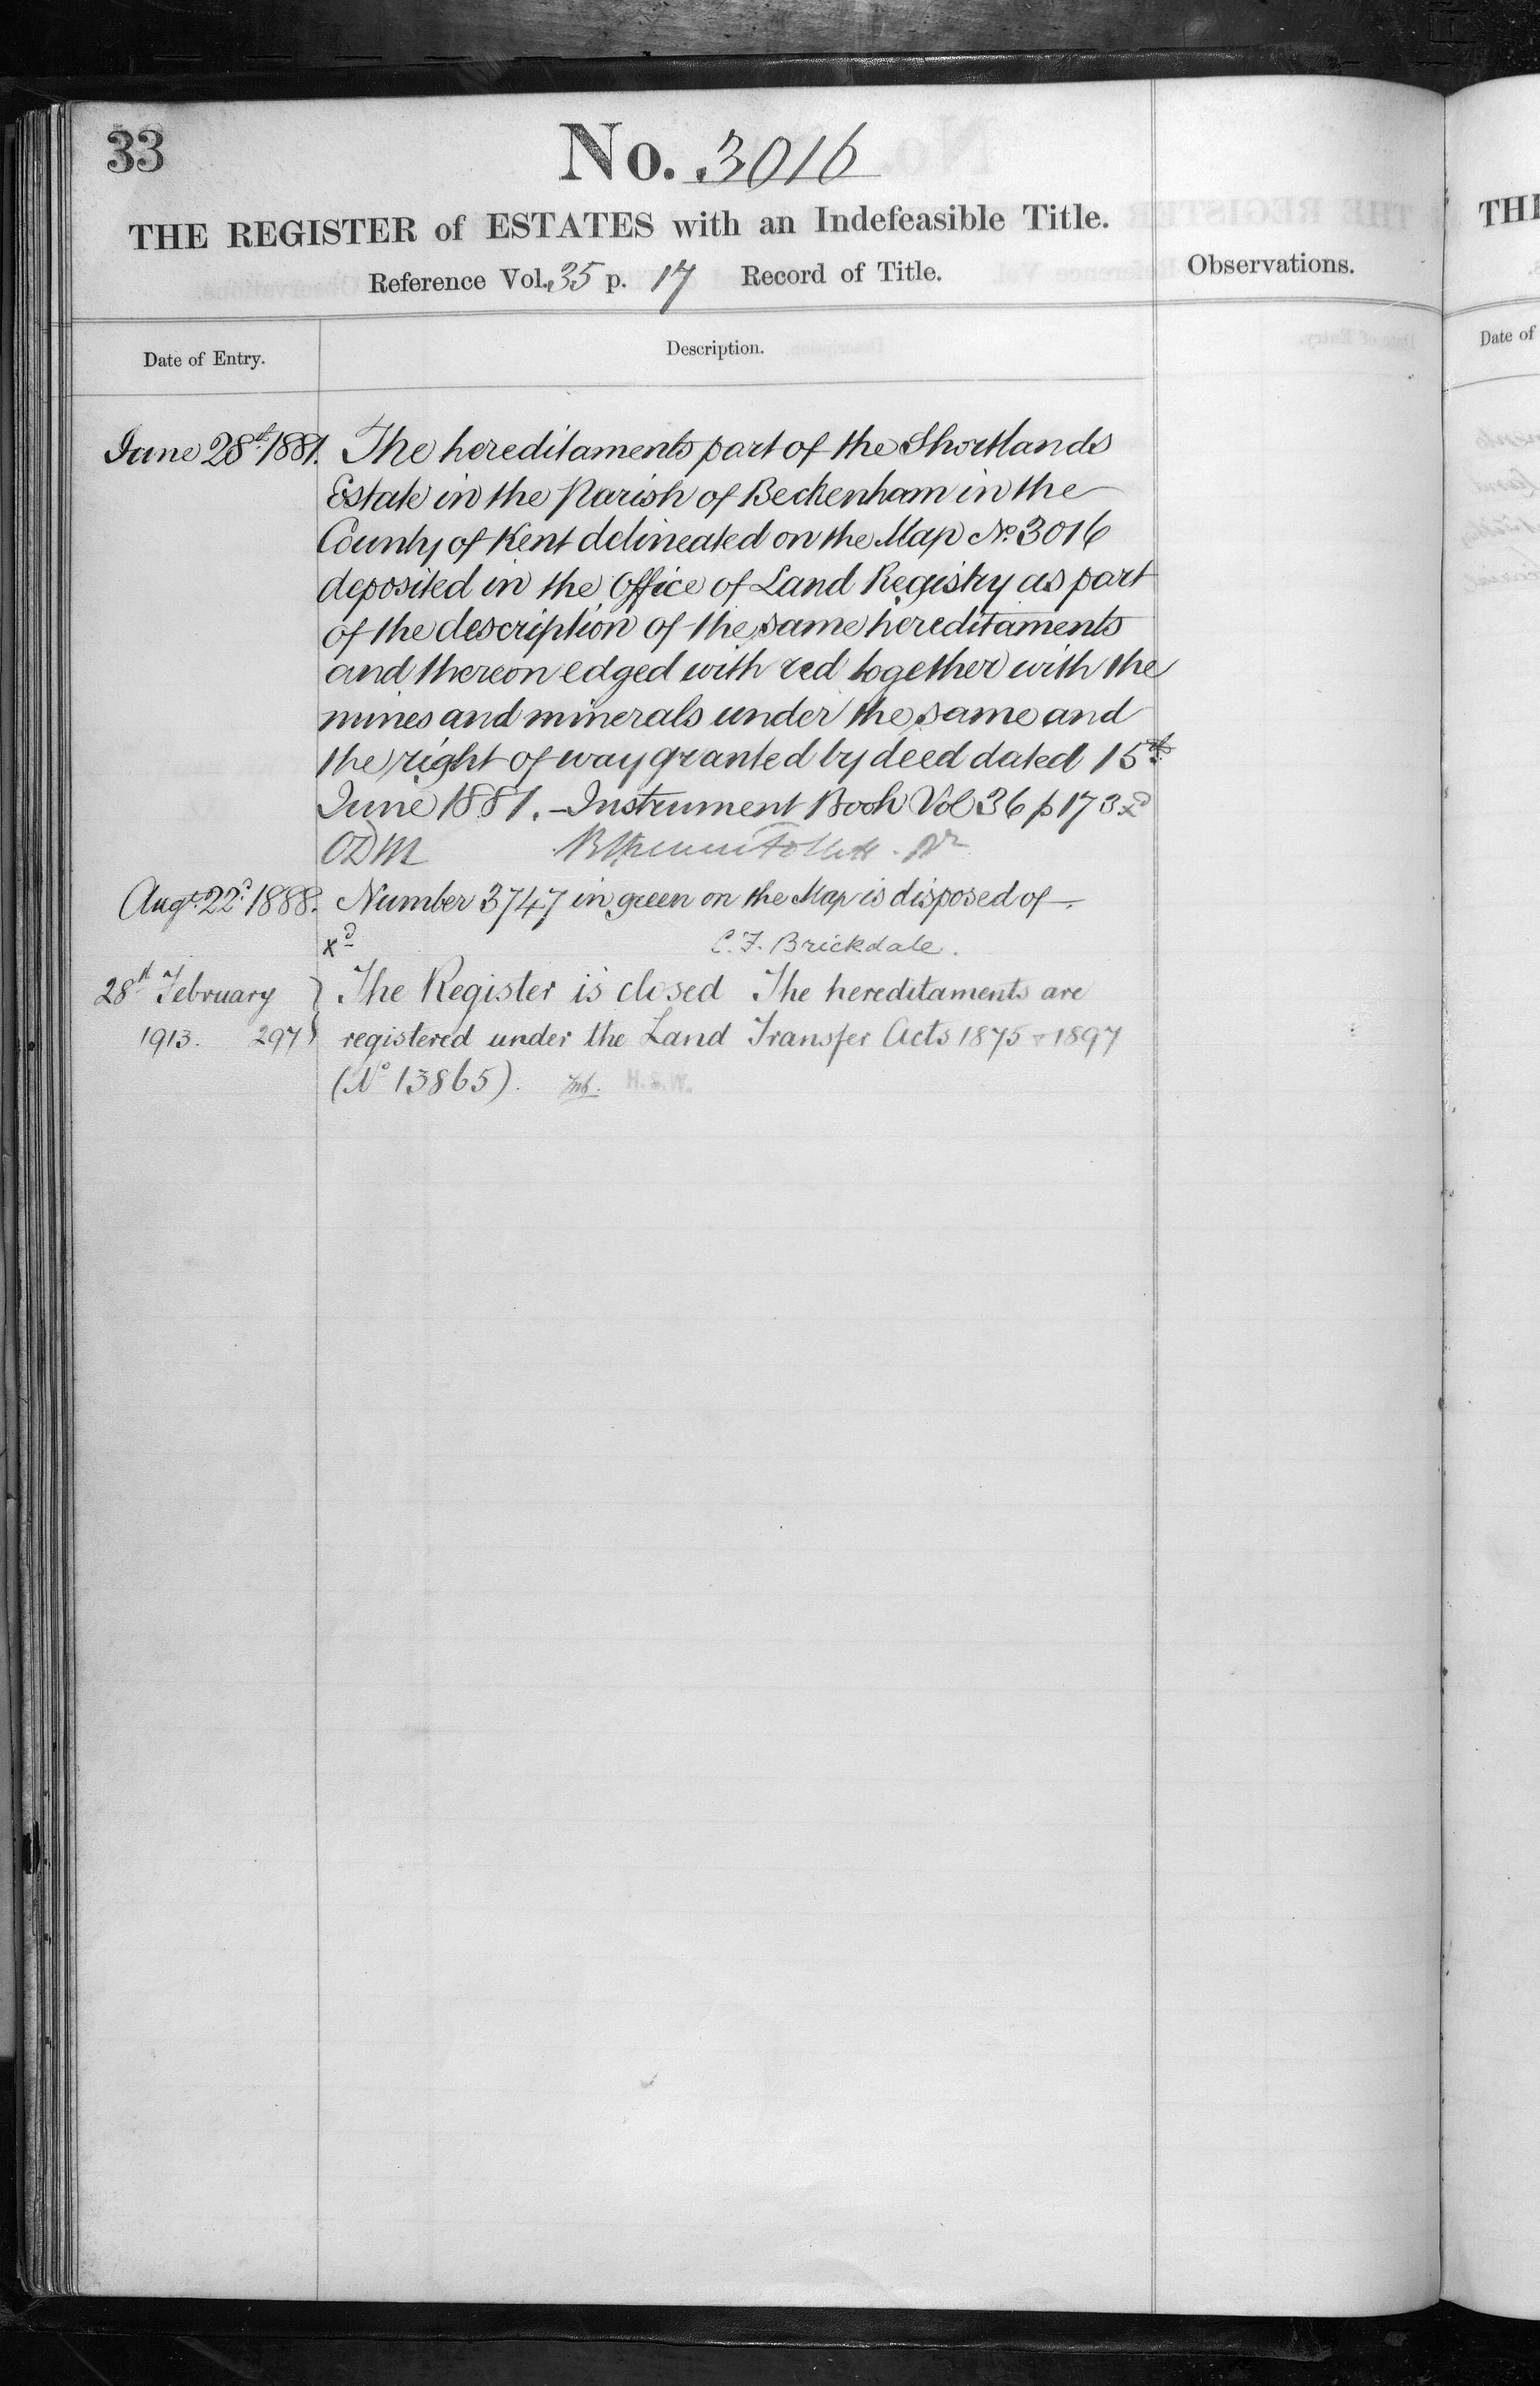 33
No. 3016
THE REGISTER of ESTATES with an Indefeasible Title.
Reference Vol. 35 p. 17 Record of Title.
Observations.
Date of Entry.
Description.
June 28th 1881. The hereditaments part of the Shortlands
Estate in the Parish of Beckenham in the
County of Kent delineated on the Map No. 3016
deposited in the Office of Land Registry as part
of the description of the same hereditaments
and thereon edged with red together with the
mines and minerals under the same and
the right of way granted by deed dated 15th
June 1881. - Instrument Book Vol 36 p 173 xd
ODM
Augt. 22d. 1888. Number 3747 in green on the Map is disposed of -.
xd C.F. Brickdale.
28th February } The Register is closed The hereditaments are
1913. 297 } registered under the Land Transfer Acts 1875 & 1897
(No 13865). H.S.W.
THE
Date of